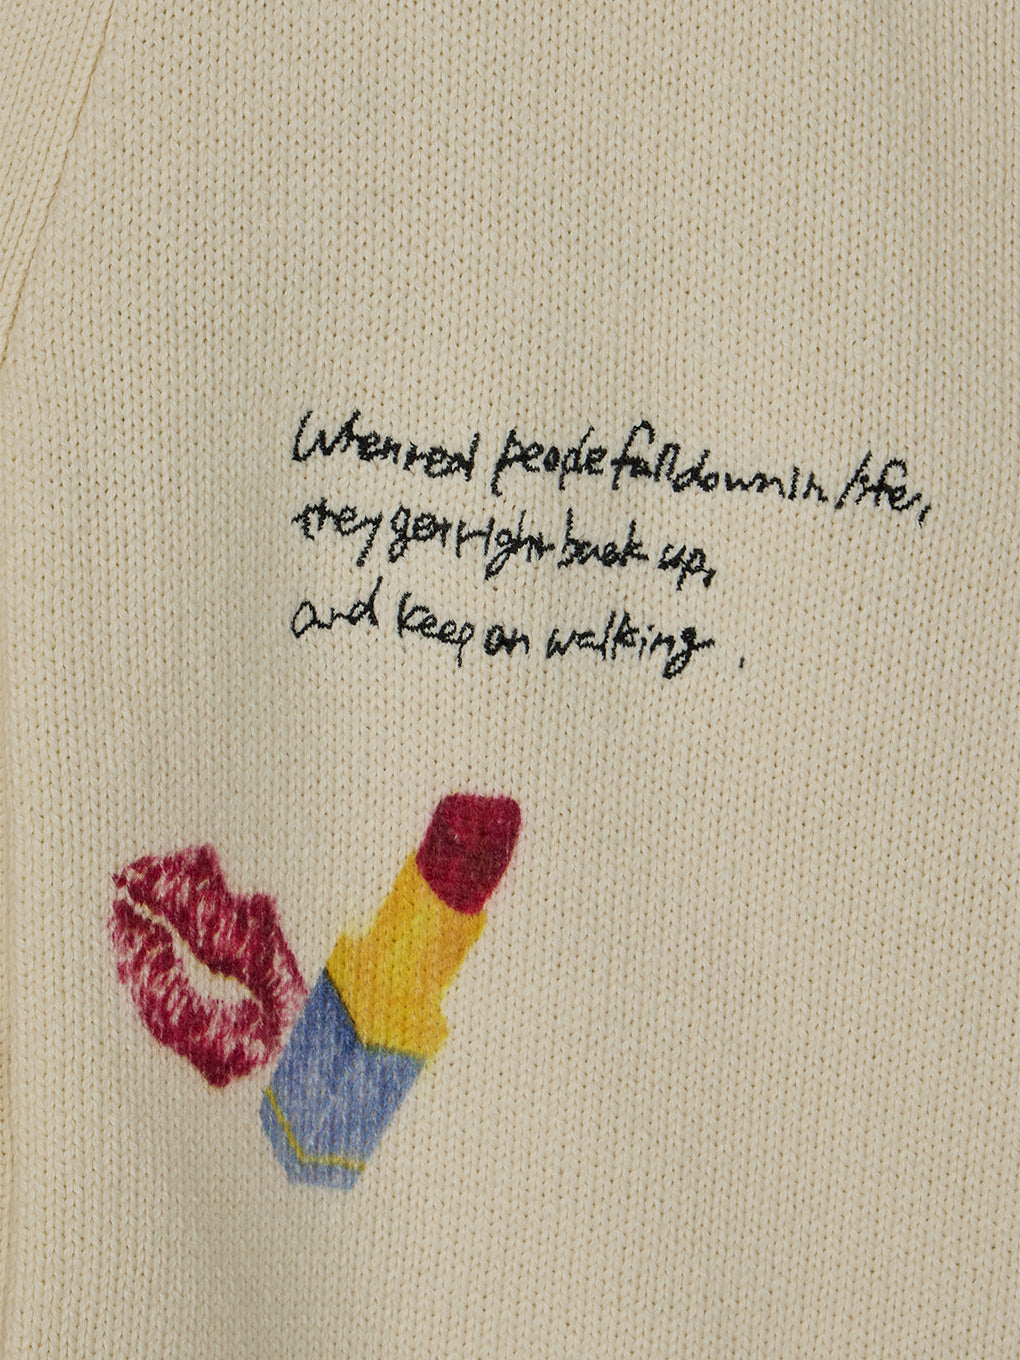 When real people fall down in life,
they get right back up,
and keep on walking.